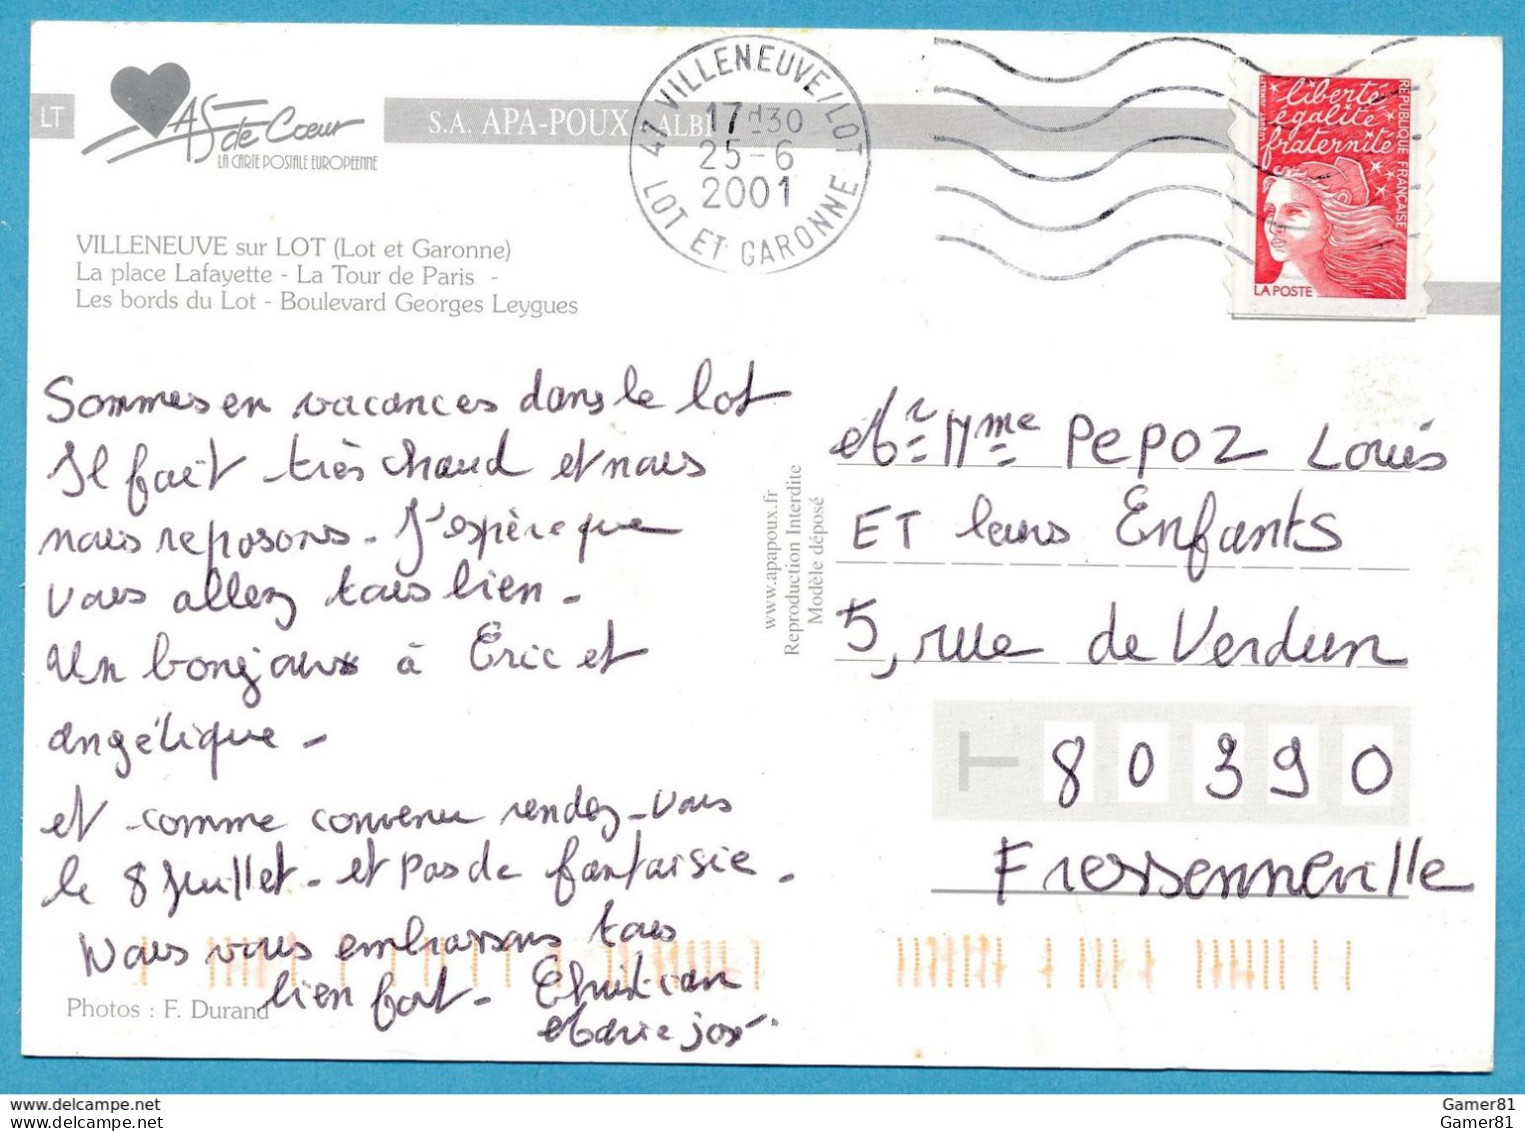 LT
AS de Coeur
LA CARTE POSTALE EUROPEENNE
S.A. APA-POUX ALBI
47 VILLENEUVE/LOT
17H30
25-6
2001
LOT ET GARONNE
liberté
égalité
fraternité
REPUBLIQUE FRANÇAISE
LA POSTE
VILLENEUVE sur LOT (Lot et Garonne)
La place Lafayette - La Tour de Paris -
Les bords du Lot - Boulevard Georges Leygues
Sommes en vacances dans le lot
Il fait très chaud et nous
nous reposons - J'espère que
vous allez tous bien -
Un bonjour à Eric et
angélique -
et comme convenu rendez-vous
le 8 Juillet - et pas de fantaisie -
Nous vous embrassons tous
bien fort - Christian
Marie josé
Photos : F. Durand
www.apapoux.fr
Reproduction Interdite
Modèle déposé
Mr Mme PePOZ Louis
ET leurs Enfants
5, rue de Verdun
T 80390
Fressenneville
www.delcampe.net
Gamer81
Gamer81